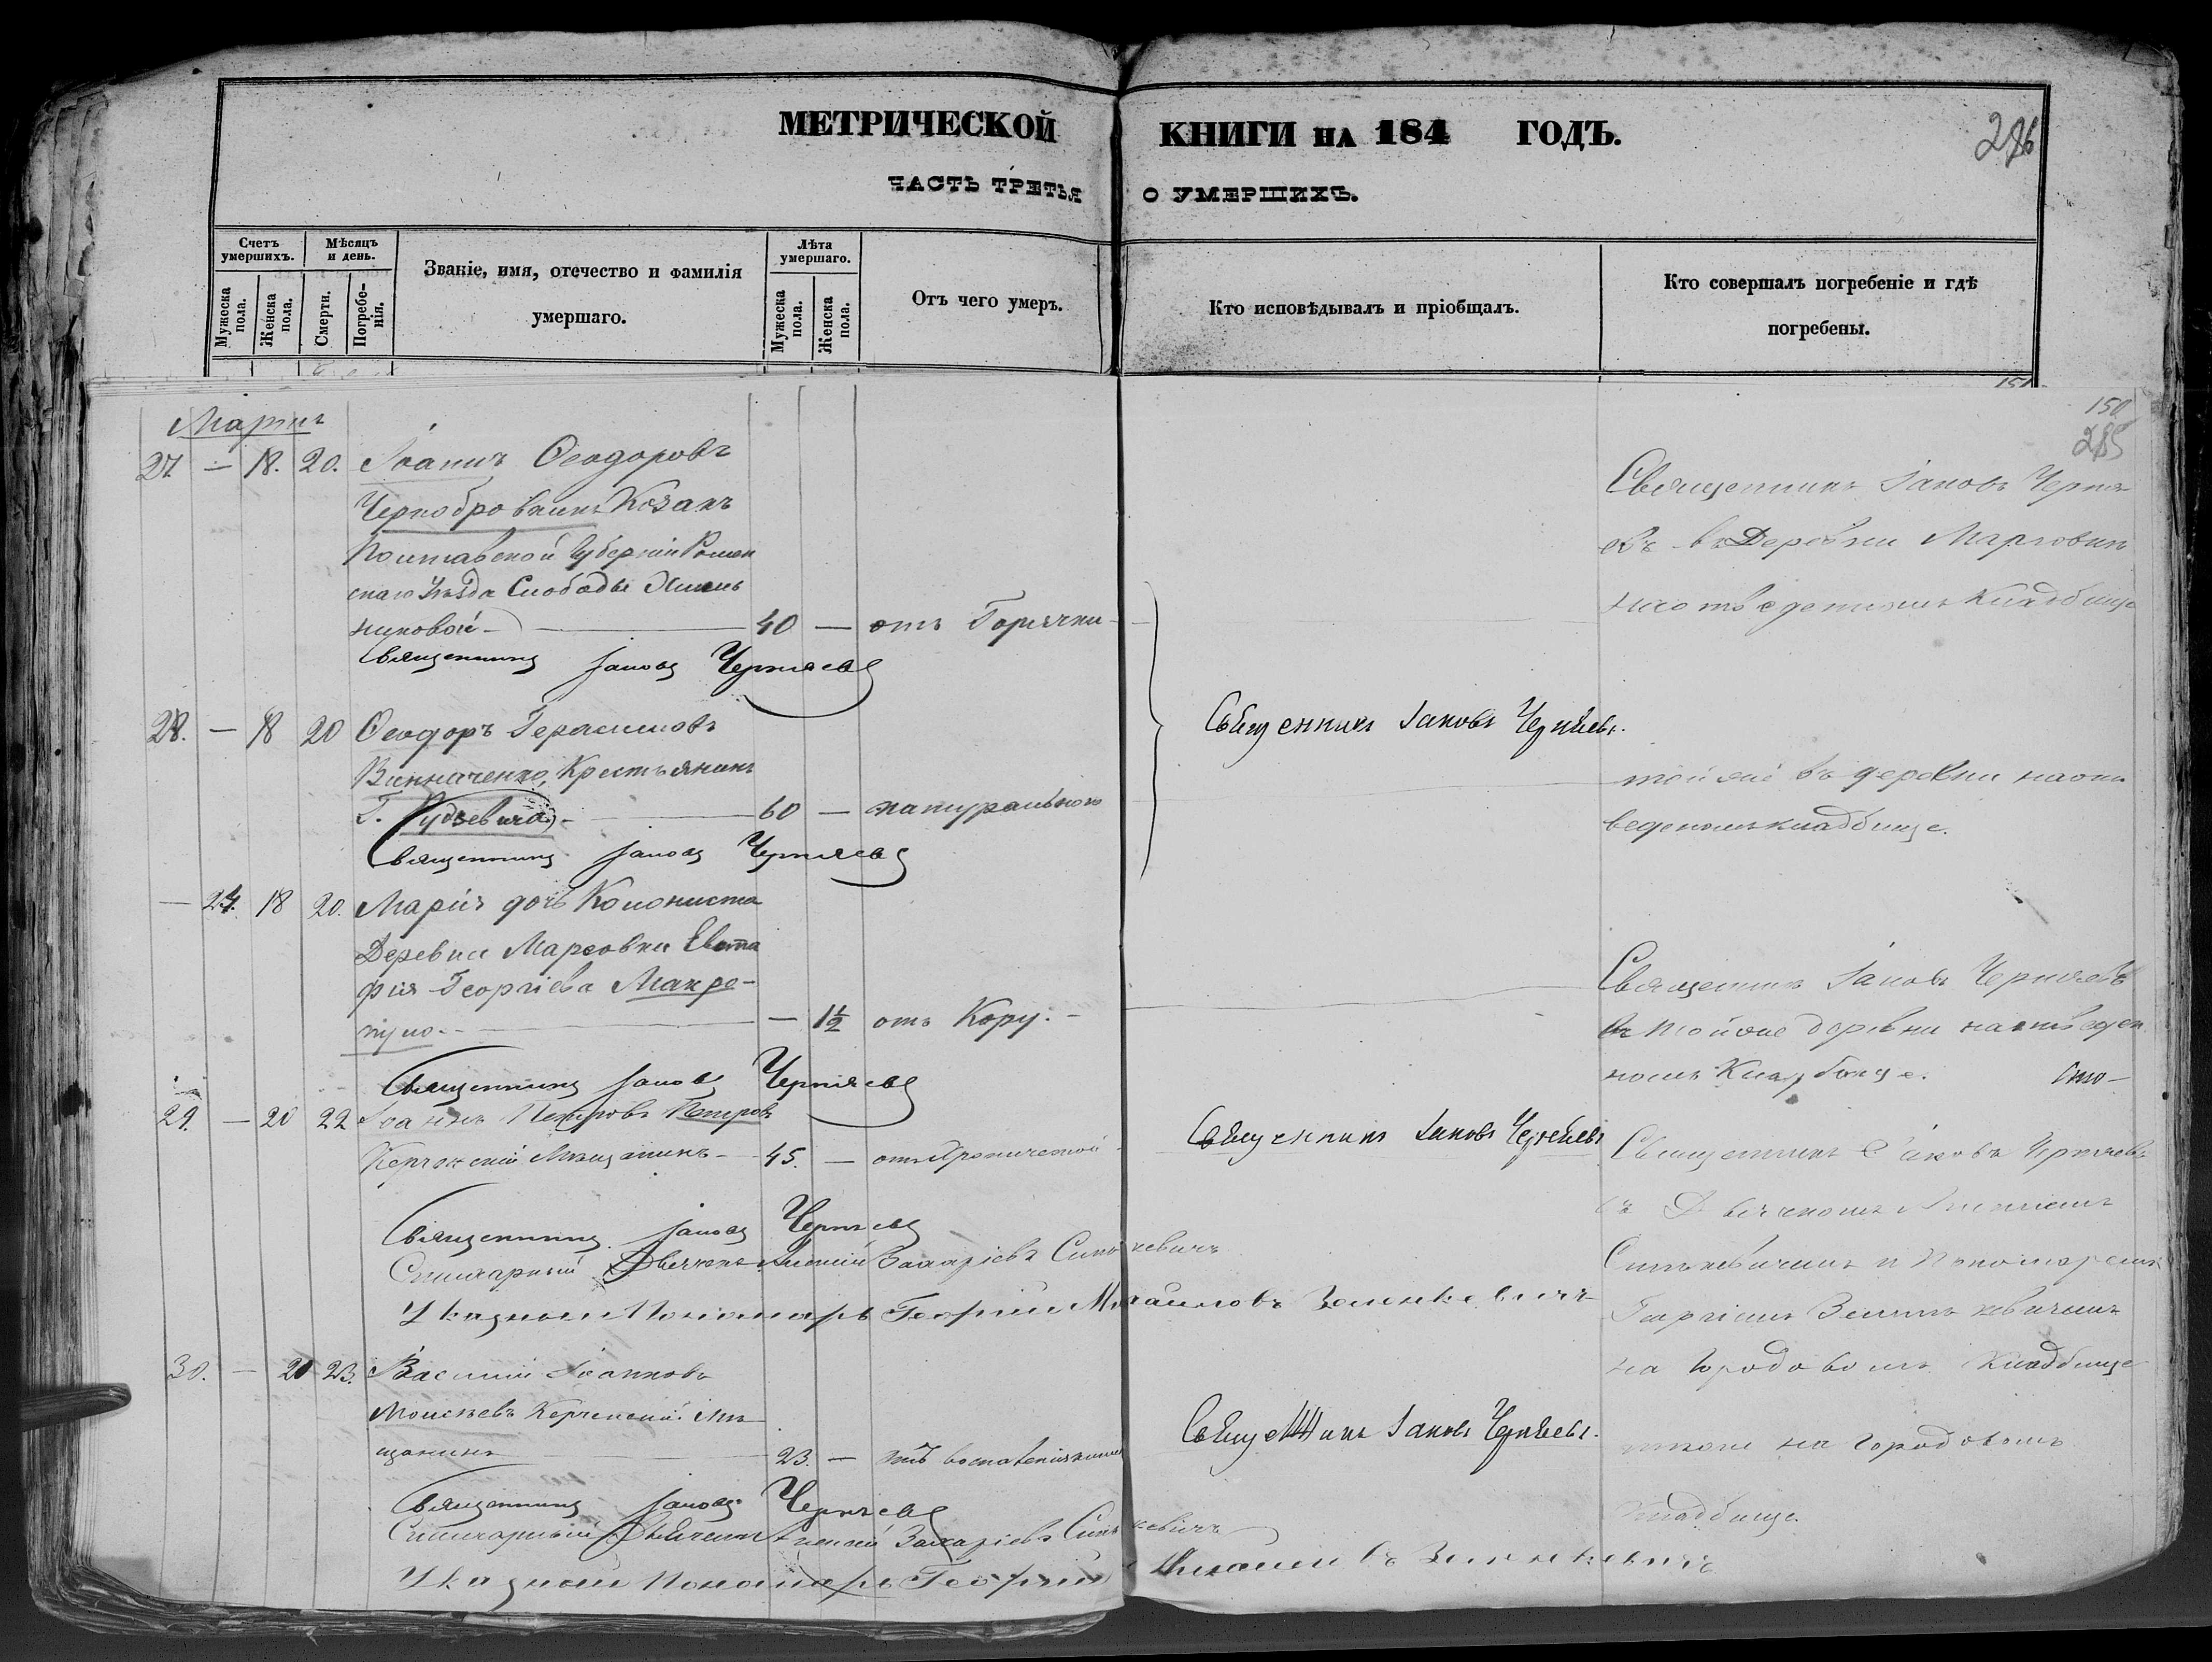 МЕТРИЧЕСКОЙ КНИГИ НА 184 ГОДЪ.
286
ЧАСТЬ ТРЕТЬЯ О УМЕРШИХЪ.
Счетъ умершихъ.
Мужеска пола.
Женска пола.
Мѣсяцъ и день.
Смерти.
Погребенія.
Званіе, имя, отечество и фамилія
умершаго.
Лѣта умершаго.
Мужеска пола.
Женска пола.
Отъ чего умеръ.
Кто исповѣдывалъ и пріобщалъ.
Кто совершалъ погребеніе и гдѣ
погребены.
151
150
285
Мартъ
27 — 18. 20. Іоаннъ Ѳеодоровъ
Чернобровкинъ Козакъ
Полтавской Губерніи Ромен
скаго Уѣзда Слободы
никовой — 40 — отъ Горячки
Священникъ Іаковъ Черняевъ
Священникъ Іаковъ Черня
евъ въ Деревни Марѳовки
на отведенномъ Кладбище
28. — 18 20 Ѳеодоръ Герасимовъ
Винниченко, Крестьянинъ
Г. Рудзевича — 60 — натурально
Священникъ Іаковъ Черняевъ
Священникъ Іаковъ Черняевъ.
той же въ деревни на от
веденомъ кладбище.
— 24. 18 20. Марія дочь Колониста
Деревни Марѳовки Евста
фія Георгіева Макре-
туло. — 1½ отъ Кору. —
Священникъ Іаковъ Черняевъ
Священникъ Іаковъ Черняевъ
въ той же деревни на отведен
номъ Кладбище.
29. — 20 22 Іоаннъ Петровъ Петровъ
Керченскій Мѣщанинъ — 45. —
Священникъ Іаковъ Черняевъ
Священникъ Іаковъ Черняевъ
Священникъ Іаковъ Черняевъ
Стихарный Дьячекъ Захаріевъ Синькевичъ
Указный Пономарь Георгій Михаиловъ Зелинкевичъ
Синькевичемъ и Пономаремъ
на Городовомъ Кладбище
30. — 20 23. Василій Іоанновъ
Моисѣевъ Керченскій Мѣ
щанинъ — 23. — отъ воспаленія
Священникъ Іаковъ Черняевъ
Священникъ Іаковъ Черняевъ.
на городовомъ
кладбище.
Стихарный Дьячекъ Захаріевъ Синькевичъ
Указный Пономарь Георгій Михаиловъ Зелинкевичъ